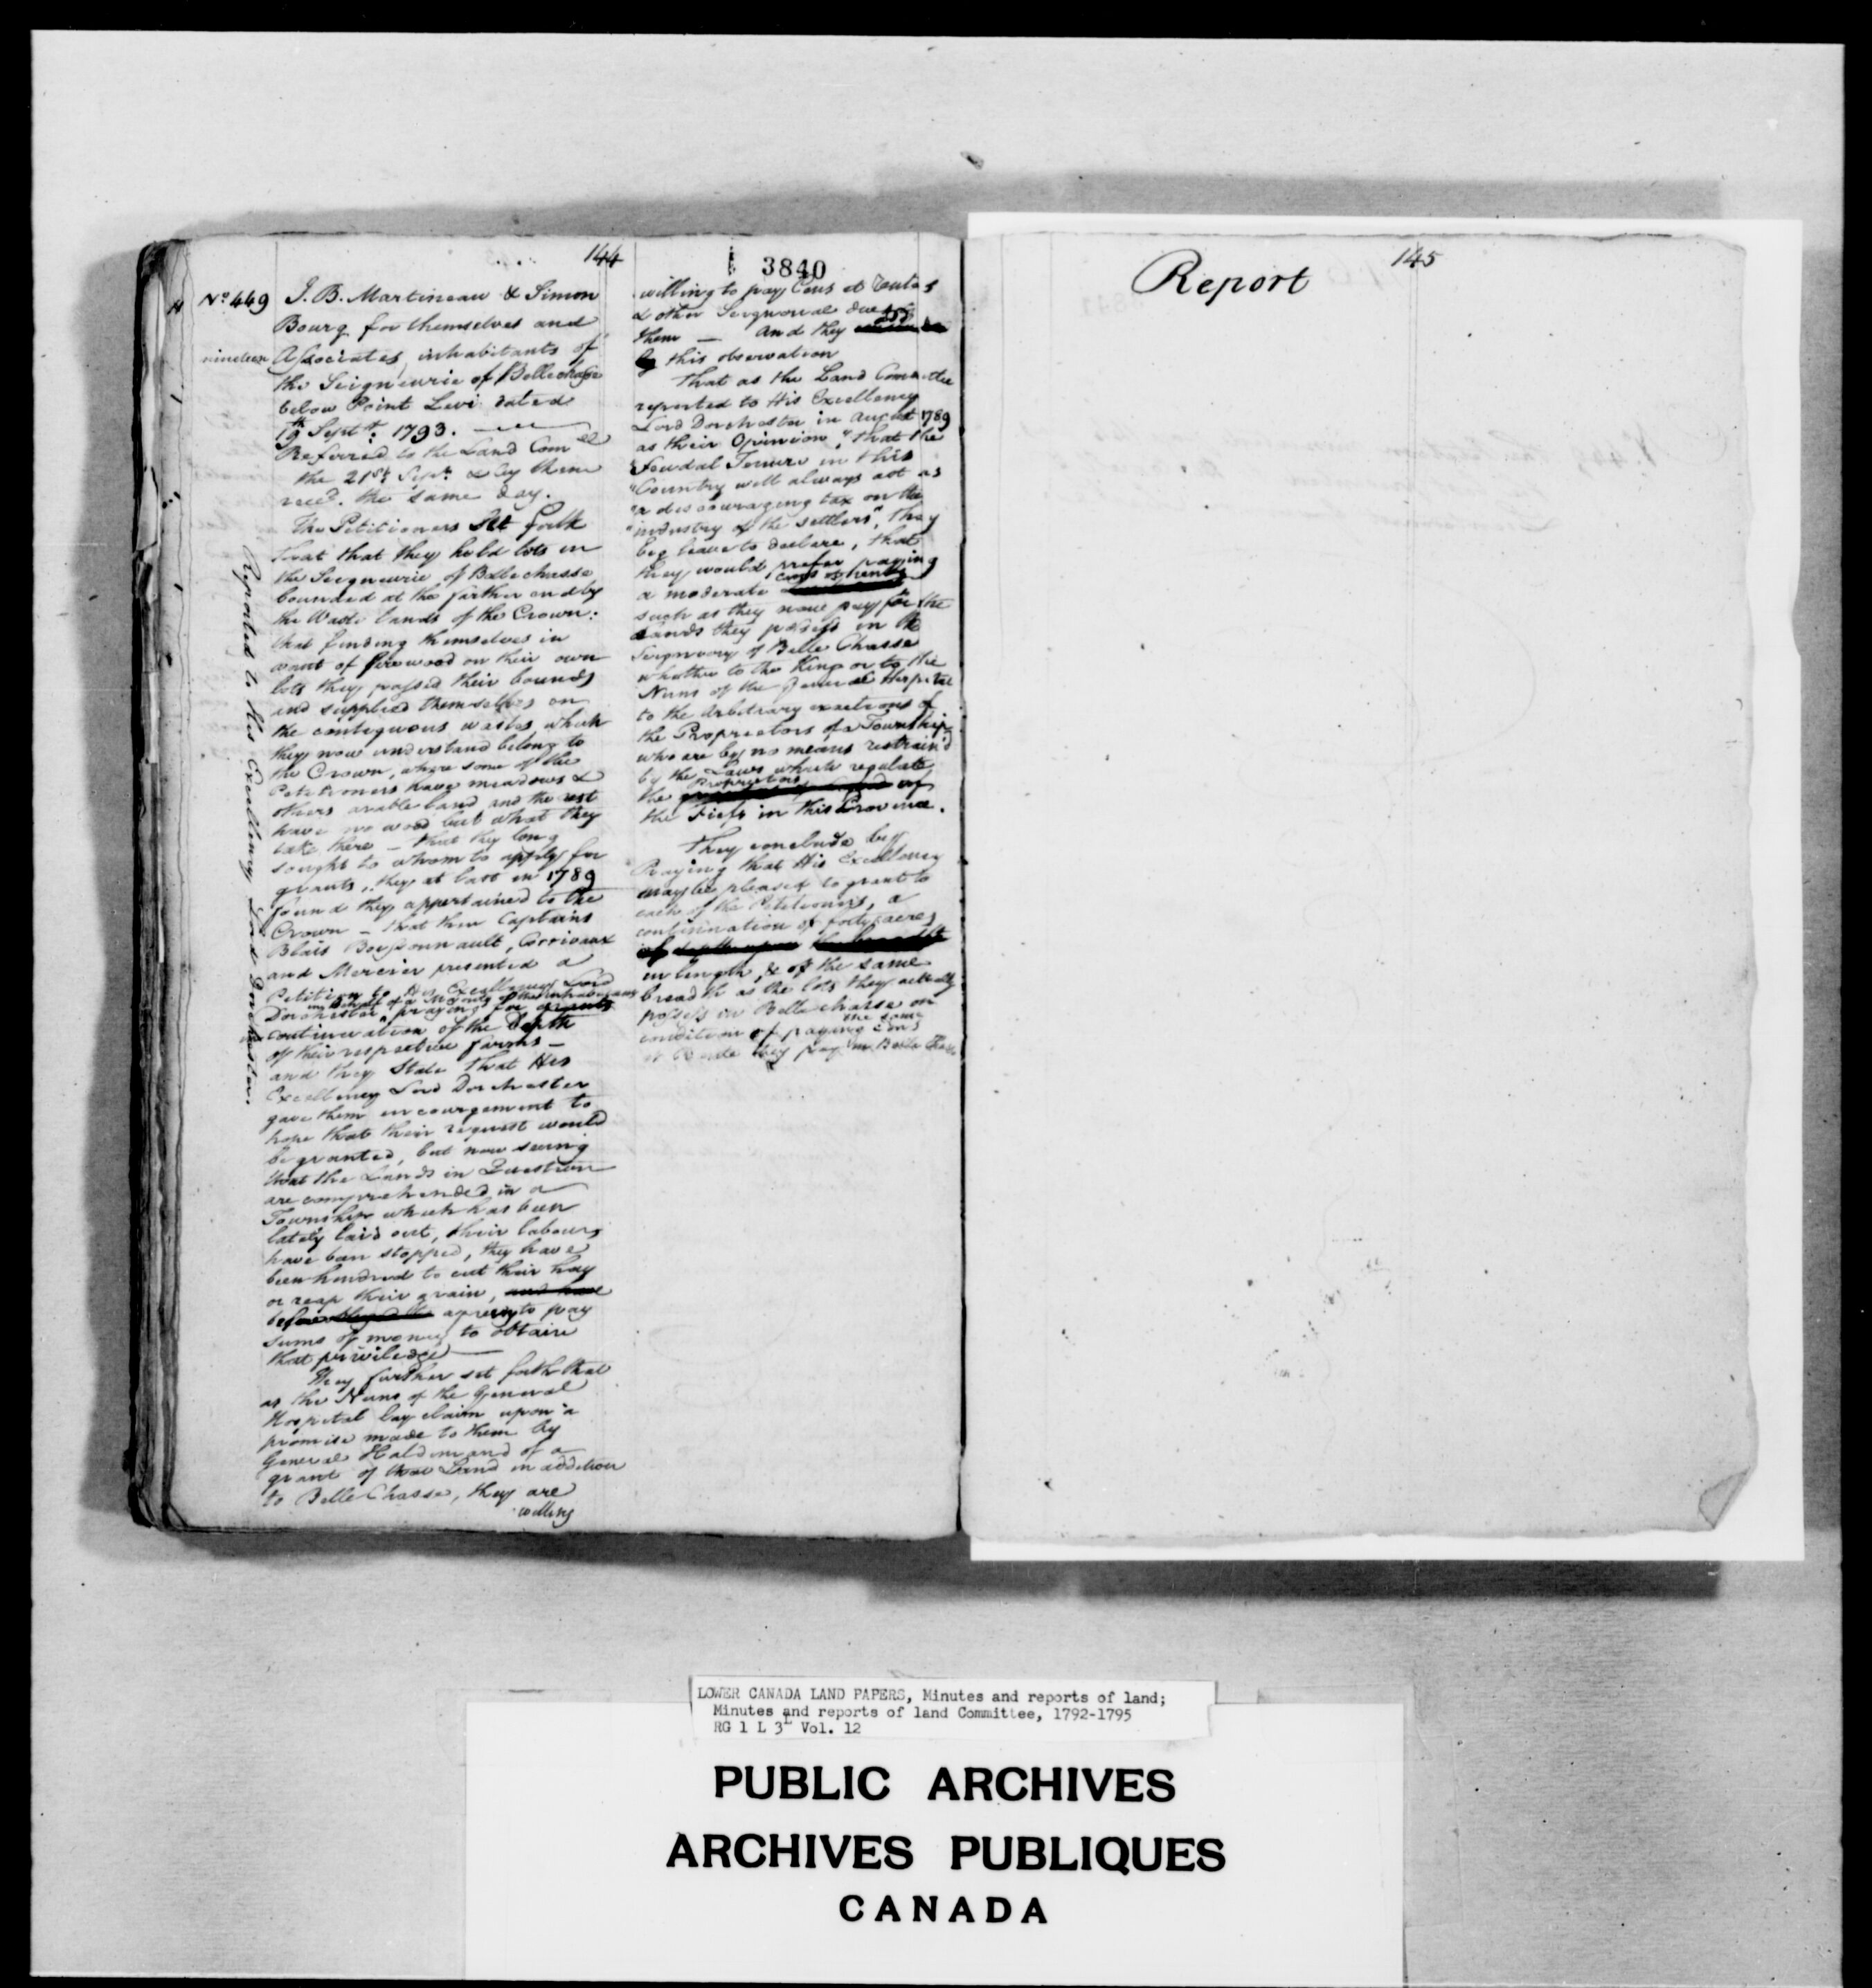 144
3840
Nº 449 J. B. Martineau & Simon
Bourg for themselves and
nineteen Associates, inhabitants of
the Seigneurie of Bellechasse
below Point Levi dated
19th Septr. 1793.
Referred to the Land Comee
the 21st Septr. & by them
reced. the same day.
The Petitioners Set forth
that that they hold lots in
the Seigneurie of Bellechasse
bounded at the farther end by
the Waste lands of the Crown:
that finding themselves in
want of firewood on their own
lots they passed their bounds
and supplied themselves on
the contiguous wastes which
they now understand belong to
the Crown, where some of the
Petitioners have meadows &
others arable land and the rest
have no wood but what they
take there – that they long
sought to whom to apply for
grants, they at last in 1789
found they appertained to the
Crown – that then Captains
Blais Boissonnault, Corrivaux
and Mercier presented a
Petition to His Excellency Lord
in behalf of a Majority of the Inhabitants
Dorchester, praying for grants
in continuation of the Depth
of their respective farms –
and they State that His
Excellency Lord Dorchester
gave them encouragement to
hope that their request would
be granted, but now seeing
that the Lands in Question
are comprehended in a
Township which has been
lately laid out, their labours
have been stopped, they have
been hindred to cut their hay
or reap their grain, and have
before obliged to agreeing to pay
sums of money to obtain
that priviledge
They further set forth that
as the Nuns of the General
Hospital lay claim upon a
promise made to them by
General Haldimand of a
grant of that Land in addition
to Belle Chasse, they are
willing
Reported to His Excellency Lord Dorchester.
willing to pay Cens et Rentes
& other Seignorial dues to
them — and they
by this observation
That as the Land Committee
reported to His Excellency
Lord Dorchester in August 1789
as their Opinion, "that the
"Feudal Tenure in this
"Country will always act as
"a discouraging tax on the
"industry of the settlers", they
beg leave to declare, that
they would prefer paying
Cens & rents
a moderate
such as they now pay for the
Lands they possess in the
Seignory of Belle Chasse
whether to the King or to the
Nuns of the General Hospital
to the Arbitrary exactions of
the Proprietors of a Township
who are by no means restrain'd
by the Laws which regulate
Proprietors
the of
the Fiefs in this Province.
They conclude by
Praying that His Excellency
may be pleased to grant to
each of the Petitioners, a
continuation of forty acres
of depth upon the breadth
in length, & of the same
breadth as the lots they actually
possess in Bellechasse on
the same
condition of paying Cens
et Rente they pay in Belle Chasse
145
Report
LOWER CANADA LAND PAPERS, Minutes and reports of land;
Minutes and reports of land Committee, 1792-1795
RG 1 L 3L Vol. 12
PUBLIC ARCHIVES
ARCHIVES PUBLIQUES
CANADA